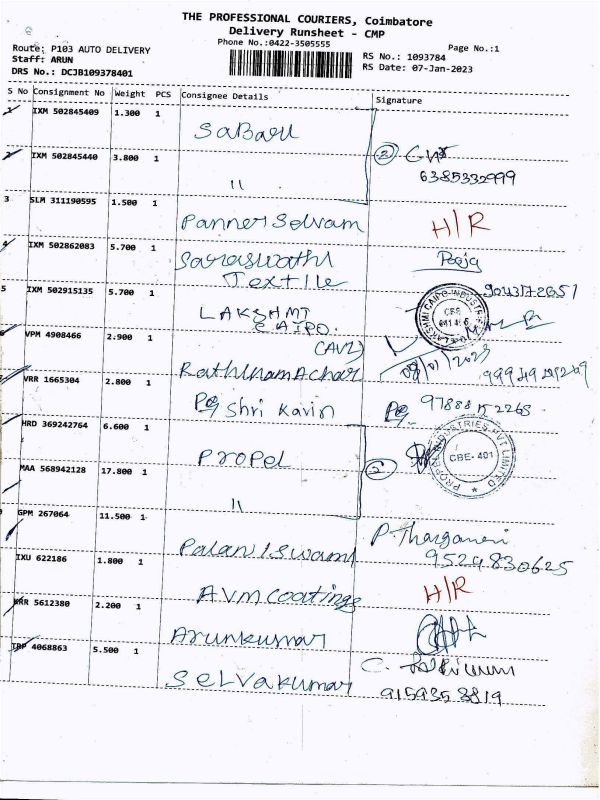 THE PROFESSIONAL COURIERS, Coimbatore
Delivery Runsheet - CMP
Phone No.:0422-3505555
Page No.:1
Route: P103 AUTO DELIVERY
Staff: ARUN
DRS No.: DCJB109378401
RS No.: 1093784
RS Date: 07-Jan-2023
S No Consignment No Weight PCS Consignee Details Signature
IXM 502845409 1.300 1 SaBari
IXM 502845440 3.800 1 11 2
6385332999
3 SLM 311190595 1.500 1 Panner Selvam H/R
4 IXM 502862083 5.700 1 Saraswathi Textile Pooja
5 IXM 502915135 5.700 1 LAKSHMI CAIPO. 9043172651
LAKSHMI CAIPO INDUSTRIES
CBE
641
6 VPM 4908466 2.900 1 (AVZ) Rathinam Achar
VRR 1665304 2.800 1 Shri Kavin
HRD 369242764 6.600 1 Propel
PROPEL INDUSTRIES PVT LIMITED
CBE- 401
MAA 568942128 17.800 1 11 2
GPM 267064 11.500 1 Palaniswami
9529830625
IXU 622186 1.800 1 AVM Coatings H/R
KRR 5612380 2.200 1 Arunkumar
TRP 4068863 5.500 1 Selvakumar
9159353819